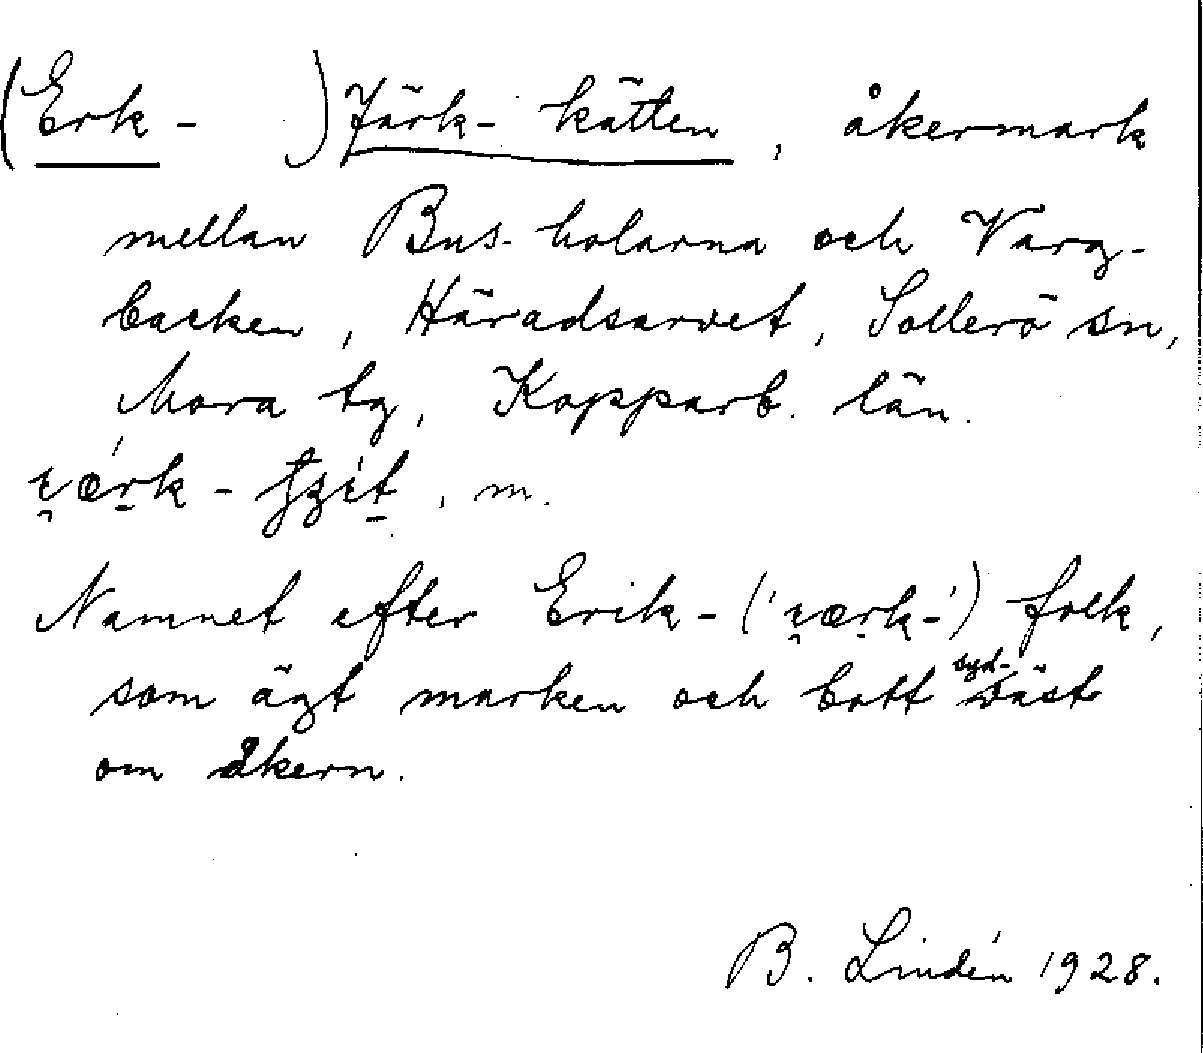 (Erk- ) Järk-kätten, åkermark
mellan Bus-holarna och Varg-
backen, Häradsarvet, Sollerö sn,
Mora tg, Kopparb. län.
, m.
Namnet efter Erik- ( ) folk,
som ägt marken och bott syd-väst
om åkern.
B. Lindén 1928.